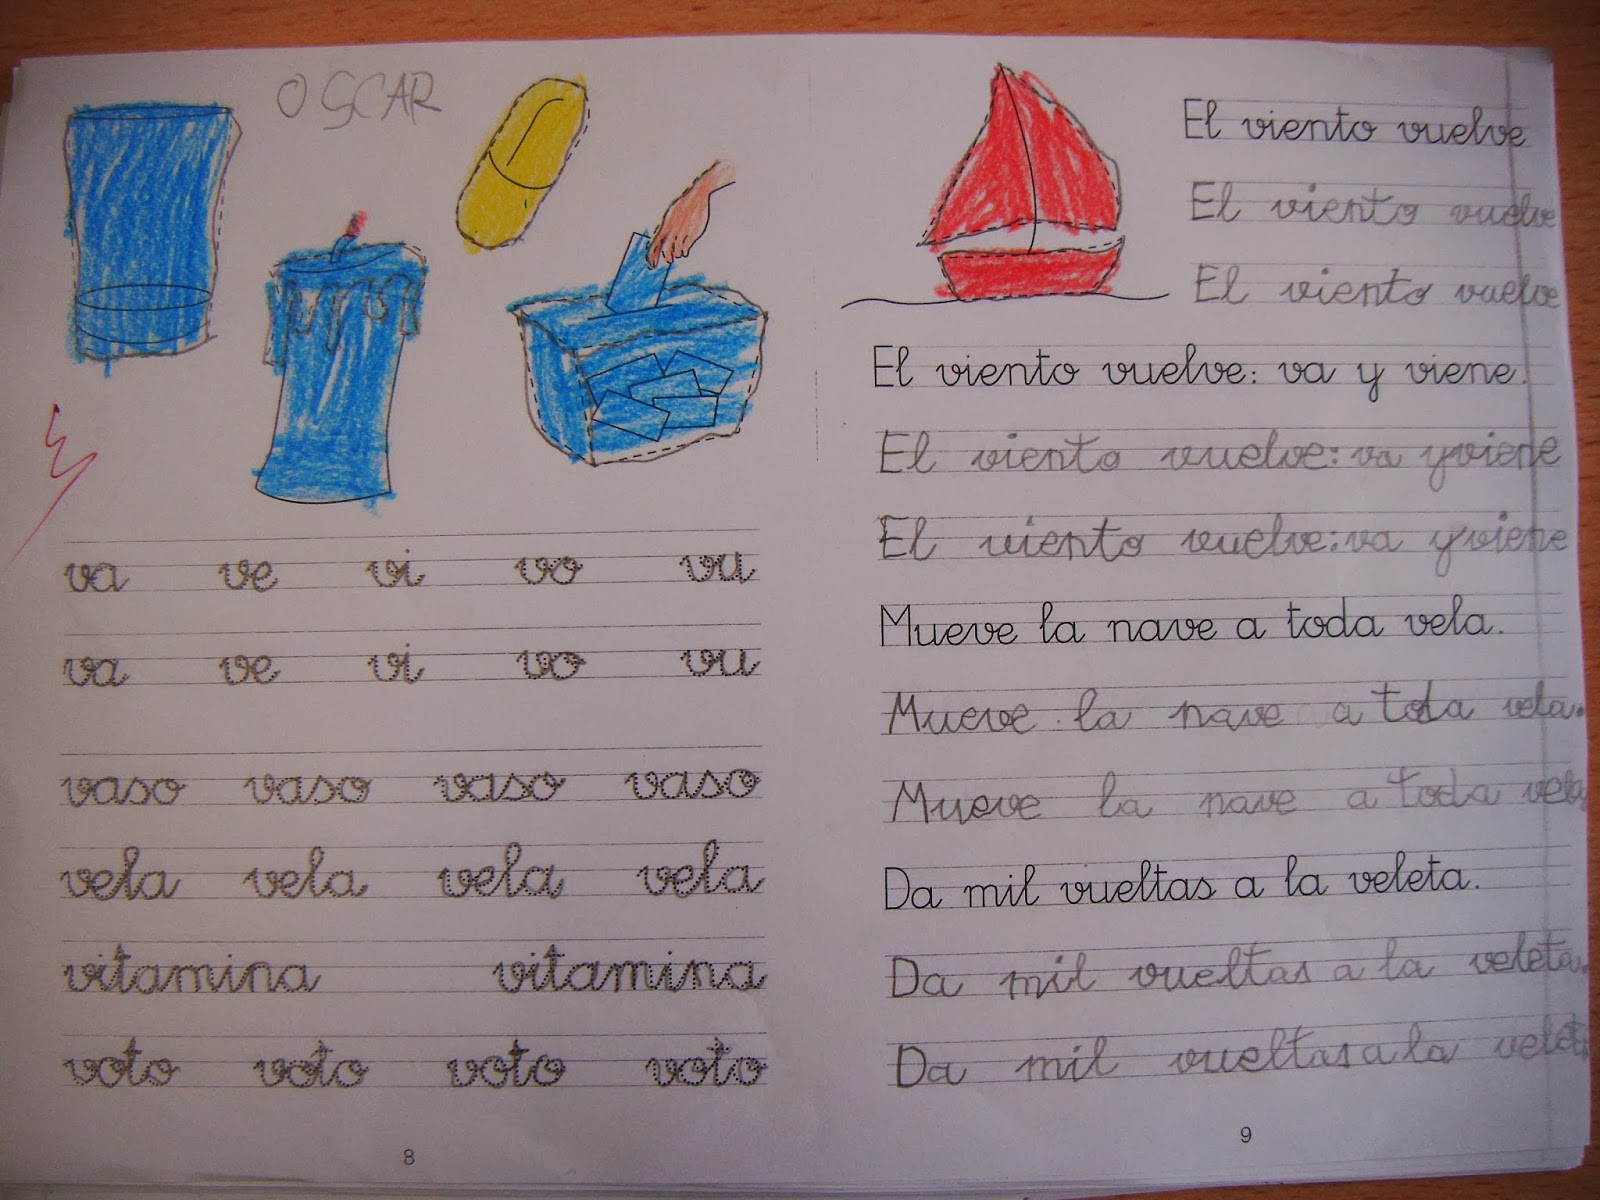 OSCAR
va ve vi vo vu
va ve vi vo vu
vaso vaso vaso vaso
vela vela vela vela
vitamina vitamina
voto voto voto voto
8
El viento vuelve
El viento vuelve
El viento vuelve
El viento vuelve: va y viene.
El viento vuelve: va y viene
El viento vuelve: va y viene
Mueve la nave a toda vela.
Mueve la nave a toda vela.
Mueve la nave a toda vela
Da mil vueltas a la veleta.
Da mil vueltas a la veleta.
Da mil vueltas a la
9